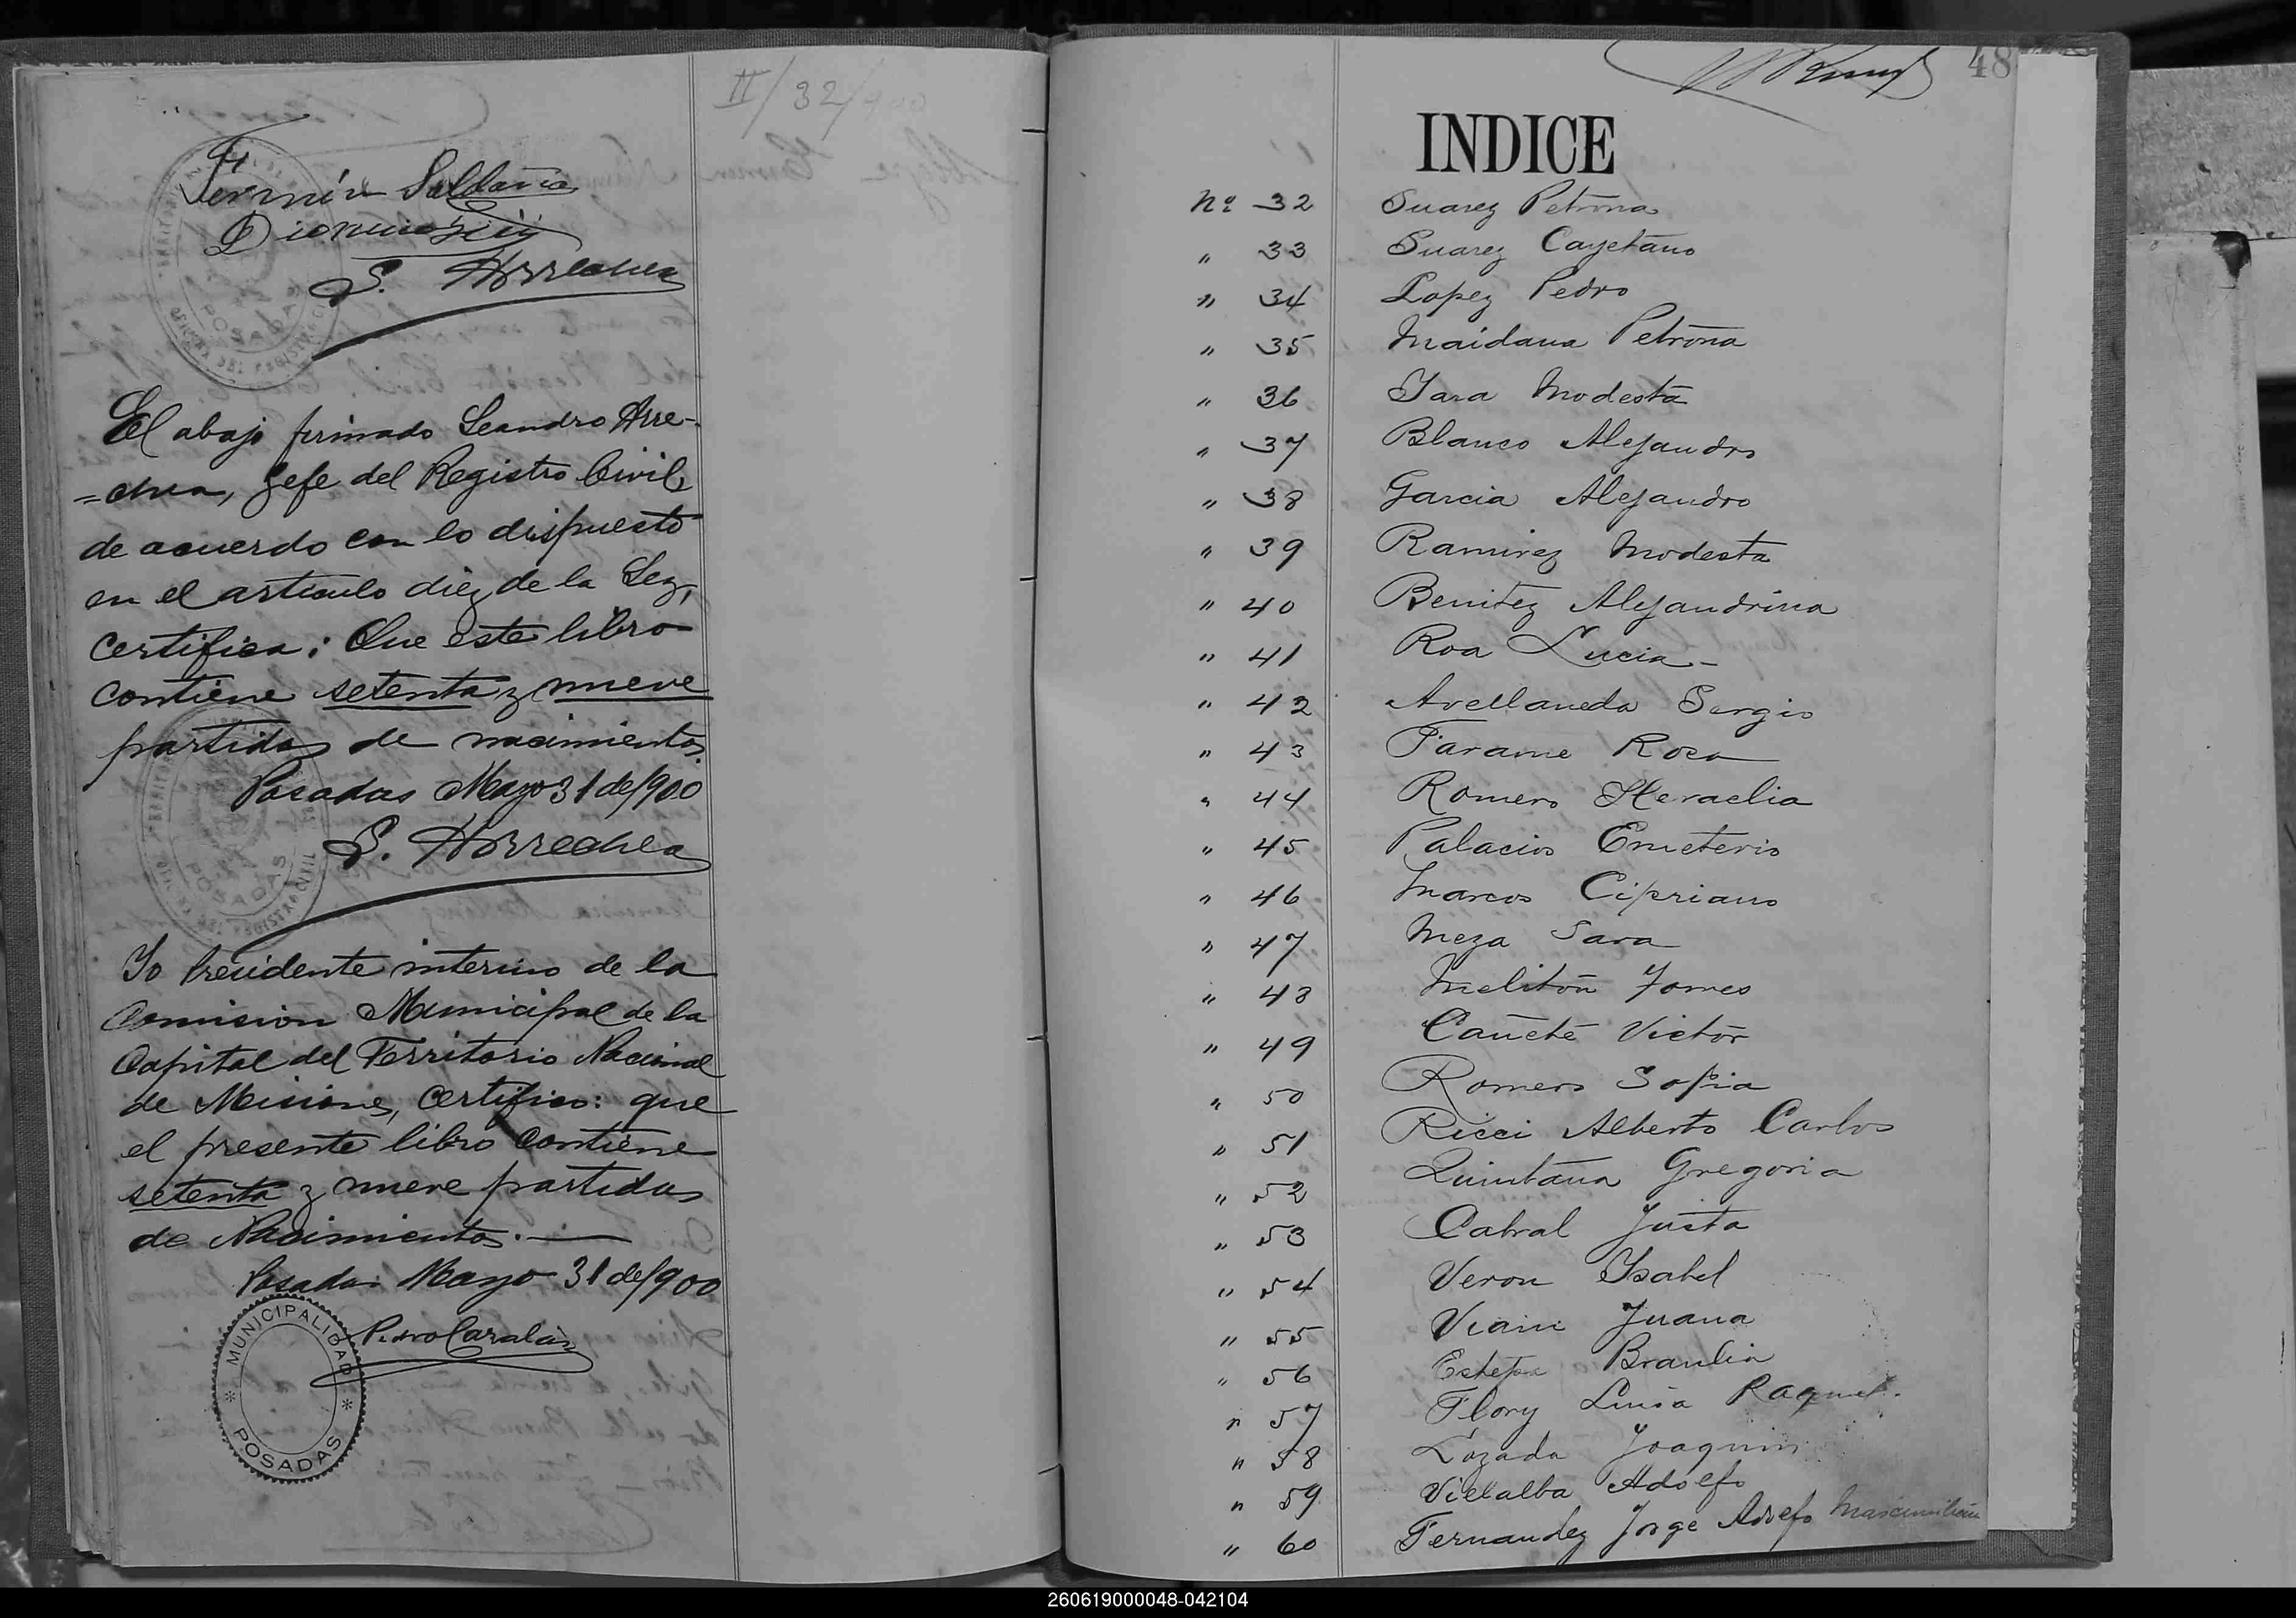 II/32/900
Fermín Saldaña
L. Arrechea
El abajo firmado Leandro Arre-
=chea, Gefe del Registro Civil,
de acuerdo con lo dispuesto
en el artículo diez de la Ley,
Certifica: Que este libro
contiene setenta y nueve
partidas de nacimientos.
Posadas Mayo 31 de 1900
L. Arrechea
POSADAS
Yo Presidente interino de la
Comision Municipal de la
Capital del Territorio Nacional
de Misiones, Certifico: que
el presente libro contiene
setenta y nueve partidas
de Nacimientos.
Posadas Mayo 31 de 1900
MUNICIPALIDAD
POSADAS
48
INDICE
Nº 32 Suarez Petrona
" 33 Suarez Cayetano
" 34 Lopez Pedro
" 35 Maidana Petrona
" 36 Jara Modesta
" 37 Blanco Alejandro
" 38 Garcia Alejandro
" 39 Ramirez Modesta
" 40 Benitez Alejandrina
" 41 Roa Lucia -
" 42 Avellaneda Sergio
" 43 Farame Rosa
" 44 Romero Heraclia
" 45 Palacios Emeterio
" 46 Marcos Cipriano
" 47 Meza Sara
" 48 Melitón
" 49 Cañete Victor
" 50 Romero Sofia
" 51 Ricci Alberto Carlos
" 52 Quintana Gregoria
" 53 Cabral Justa
" 54 Veron Ysabel
" 55 Juana
" 56 Braulia
" 57 Flory Luisa Raquel.
" 58 Lozada Joaquin
" 59 Villalba Adolfo
" 60 Fernandez Jorge Adolfo
260619000048-042104